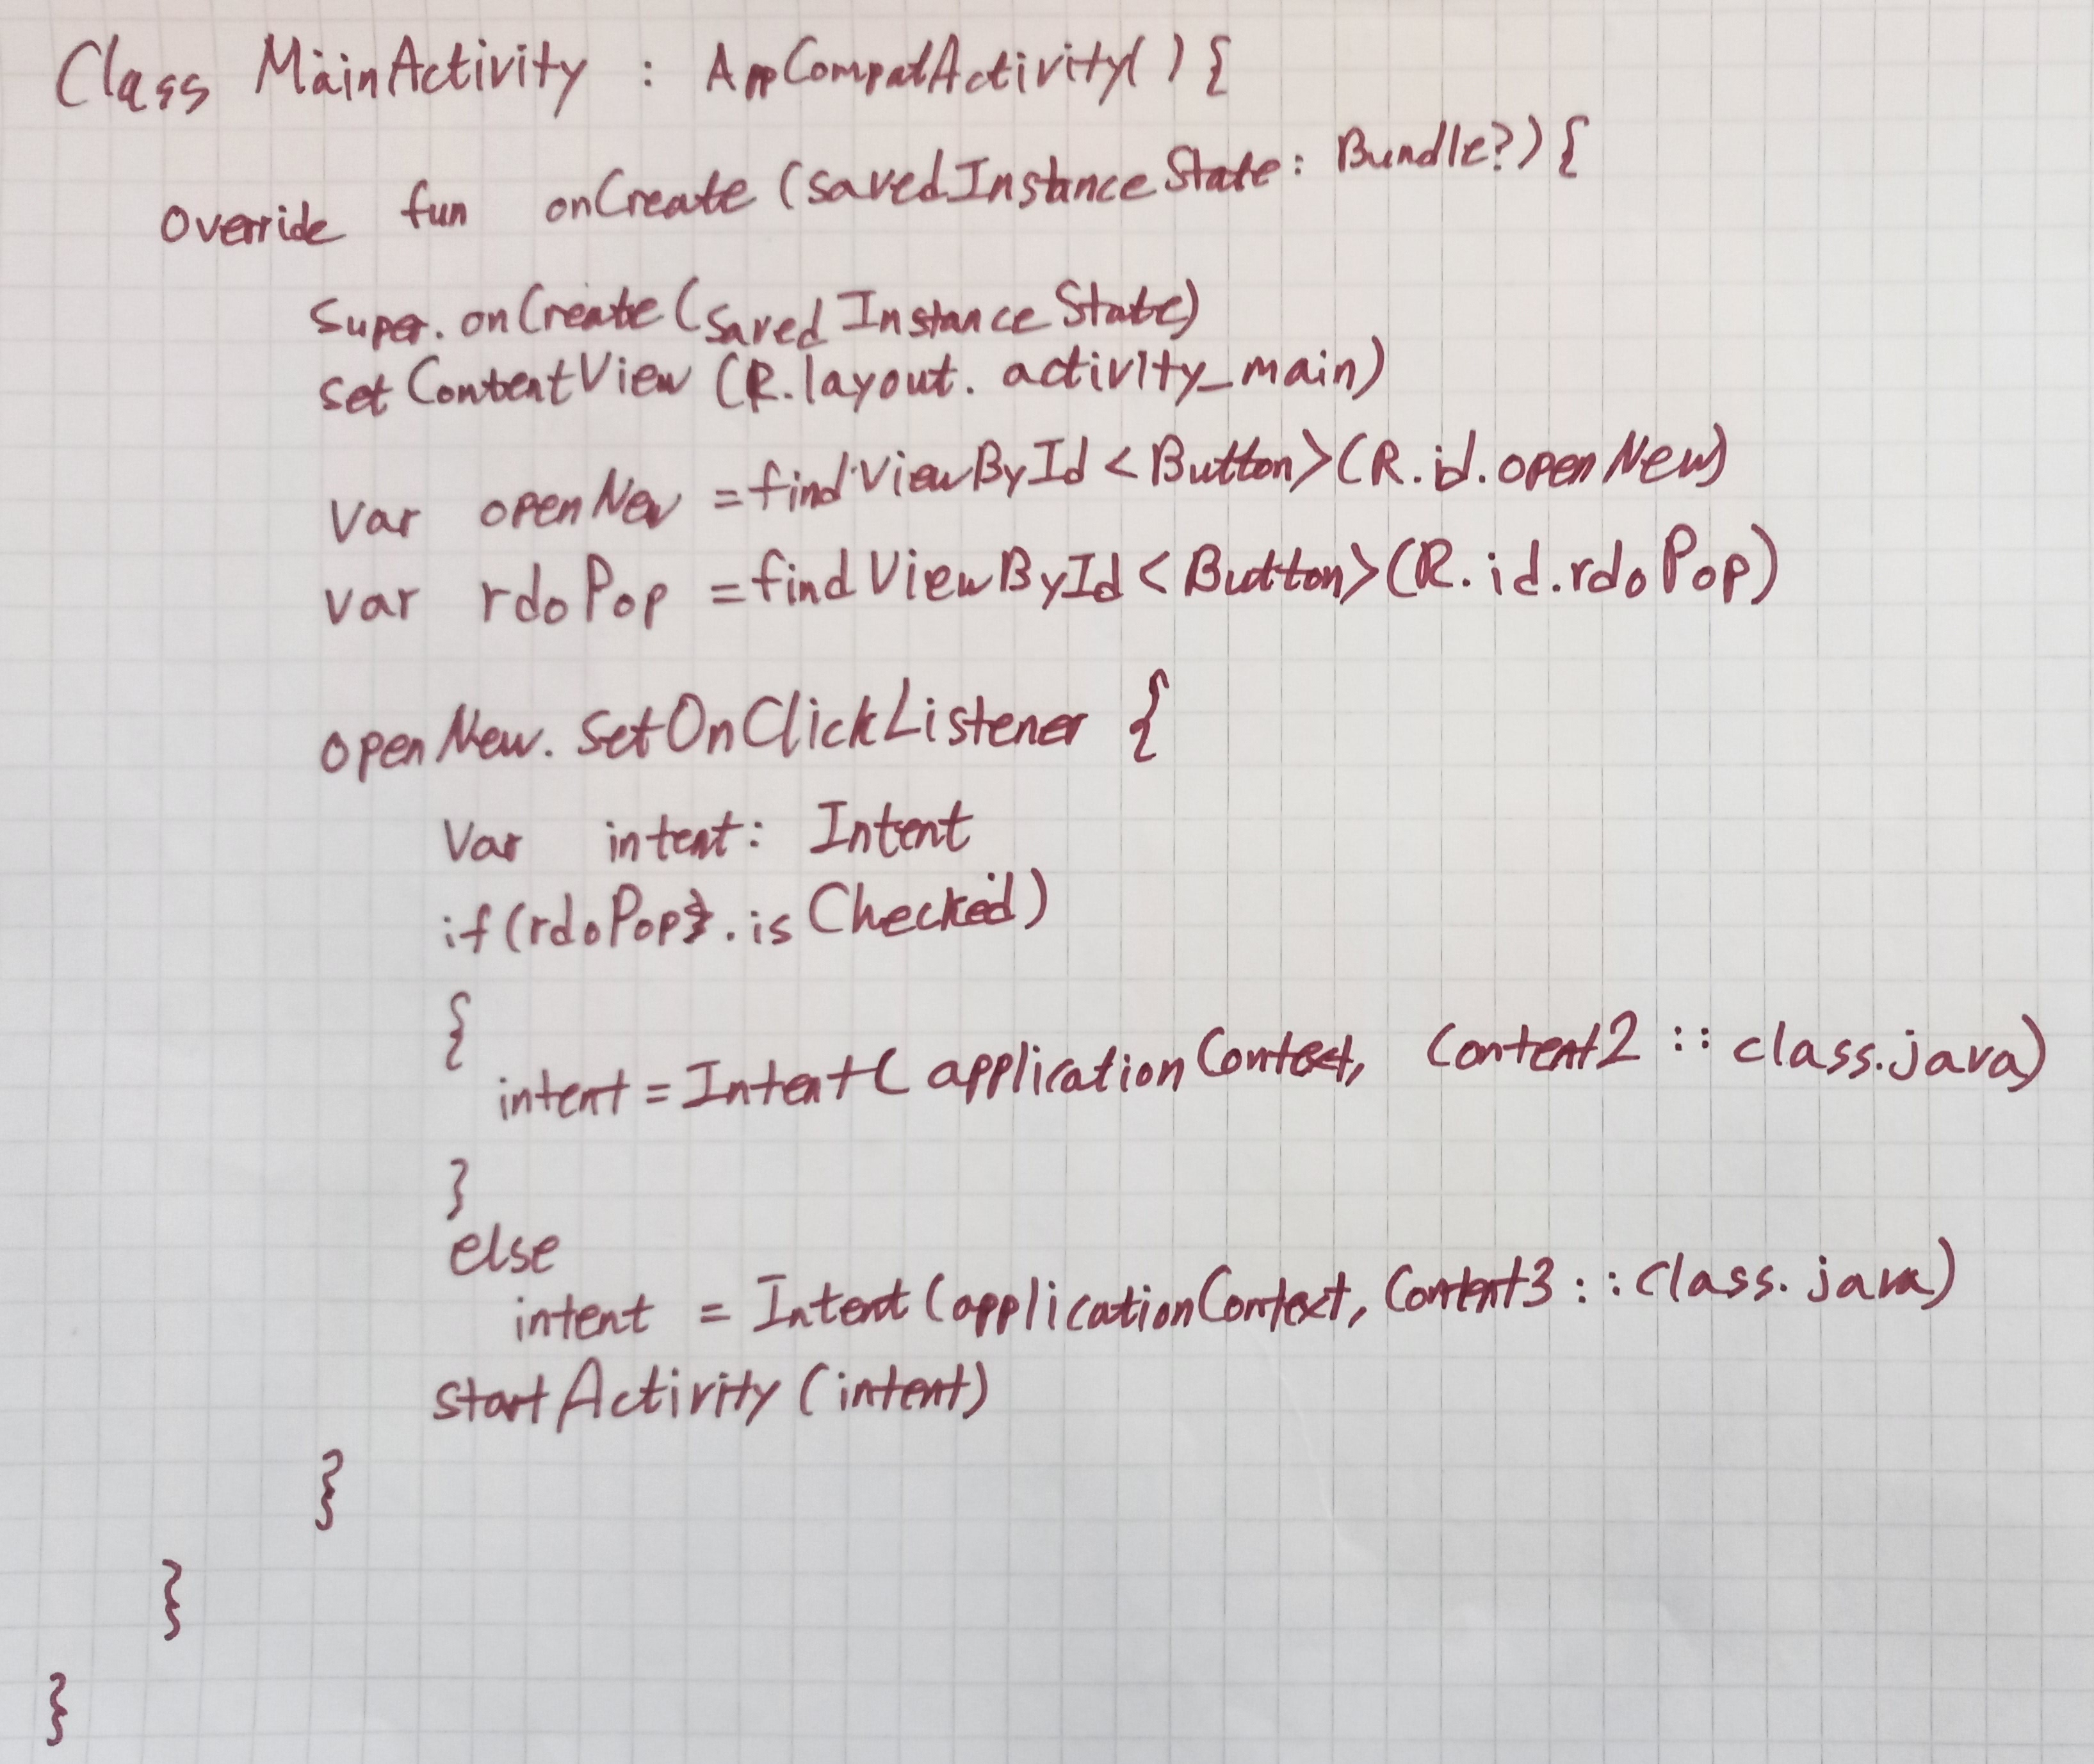 Class MainActivity : AppCompatActivity(){
override fun onCreate(savedInstanceState: Bundle?){
super.onCreate(savedInstanceState)
setContentView(R.layout.activity_main)
var openNew =findViewById<Button>(R.id.openNew)
var rdoPop =findViewById<Button>(R.id.rdoPop)
openNew.setOnClickListener {
var intent: Intent
if(rdoPop}.isChecked)
{
intent=Intent(applicationContext, Content2::class.java)
}
else
intent = Intent(applicationContext, Content3::class.java)
startActivity(intent)
}
}
}